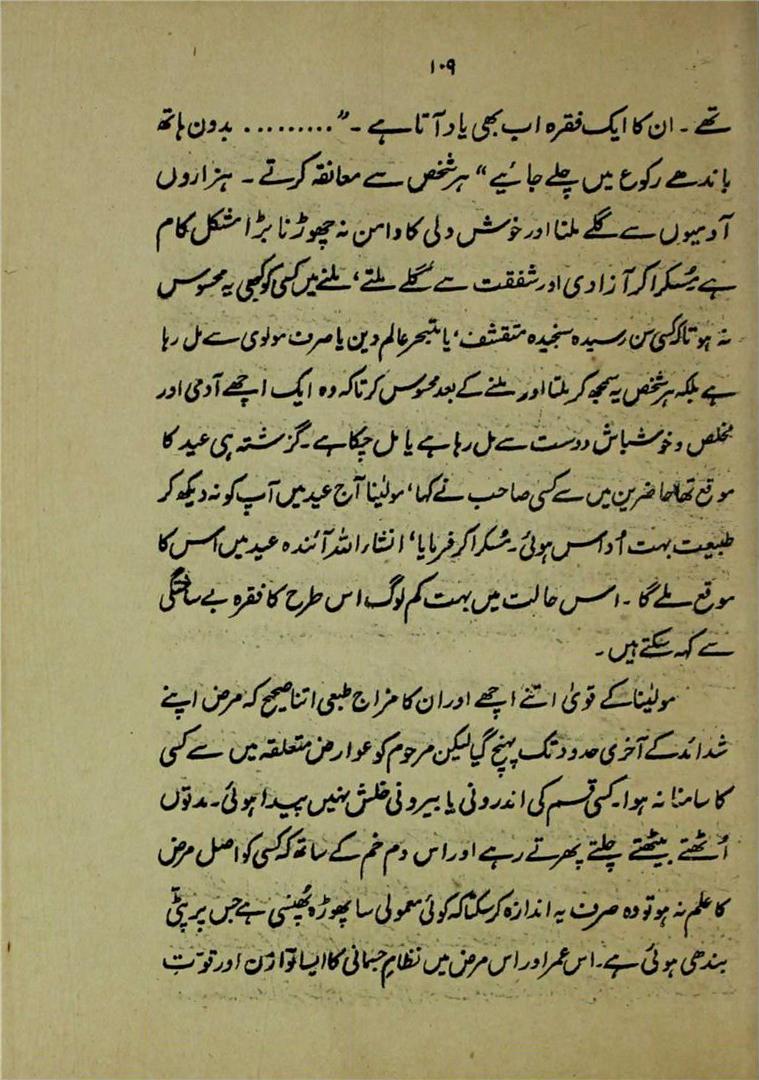 ۱۰۹
تھے ۔ ان کا ایک فقرہ اب بھی یاد آتا ہے ۔ ” ......... بدون ہاتھ
باندھے رکوع میں چلے جائیے “ ہر شخص سے معانقہ کرتے ۔ ہزاروں
آدمیوں سے گلے ملنا اور خوش دلی کا دامن نہ چھوڑنا بڑا مشکل کام
ہے مُسکرا کر آزادی اور شفقت سے گلے ملتے ، ملنے میں کسی کو کبھی یہ محسوس
نہ ہوتا کہ کسی سن رسیدہ سنجیدہ متقشف ، یا متبحر عالم دین یا صرف مولوی سے مل رہا
ہے بلکہ ہر شخص یہ سمجھ کر ملتا اور ملنے کے بعد محسوس کرتا کہ وہ ایک اچھے آدمی اور
مخلص و خوشباش دوست سے مل رہا ہے یا مل چکا ہے ۔ گزشتہ ہی عید کا
موقع تھا حاضرین میں سے کسی صاحب نے کہا ، مولینا آج عید میں آپ کو نہ دیکھ کر
طبیعت بہت اُداس ہوئی ۔ مُسکرا کر فرمایا ، انشاء اللہ آئندہ عید میں اس کا
موقع ملے گا ۔ اس حالت میں بہت کم لوگ اس طرح کا فقرہ بے ساختگی
سے کہہ سکتے ہیں ۔
مولینا کے قویٰ اتنے اچھے اور ان کا مزاج طبعی اتنا صحیح کہ مرض اپنے
شدائد کے آخری حدود تک پہنچ گیا لیکن مرحوم کو عوارض متعلقہ میں سے کسی
کا سامنا نہ ہوا ۔ کسی قسم کی اندرونی یا بیرونی خلش نہیں پیدا ہوئی ۔ مدتوں
اُٹھتے بیٹھتے چلتے پھرتے رہے اور اس دم خم کے ساتھ کہ کسی کو اصل مرض
کا علم نہ ہو تو وہ صرف یہ اندازہ کر سکتا کہ کوئی معمولی سا پھوڑہ پُھنسی ہے جس پر پٹّی
بندھی ہوئی ہے ۔ اس عمر اور اس مرض میں نظامِ جسمانی کا ایسا توازن اور قوّت